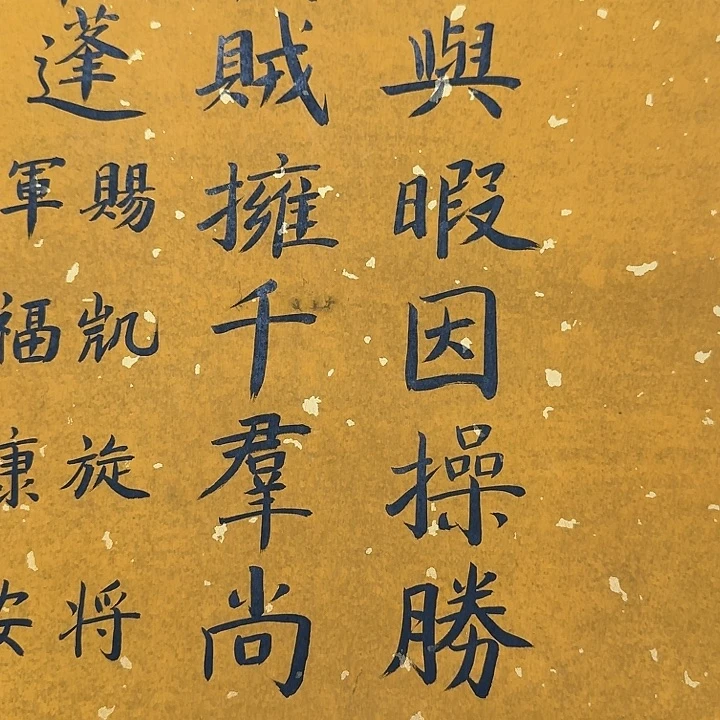 與暇因操勝
賊擁千羣尚
蓬
賜凱旋将
軍福康安